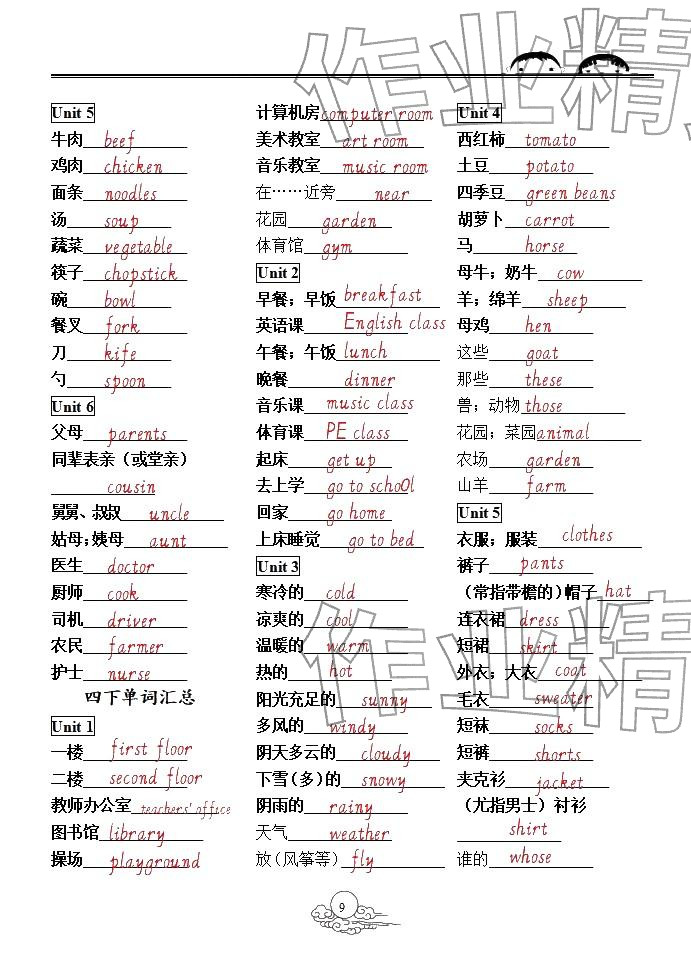 作业精
Unit 5
牛肉 beef
鸡肉 chicken
面条 noodles
汤 soup
蔬菜 vegetable
筷子 chopstick
碗 bowl
餐叉 fork
刀 kife
勺 spoon
Unit 6
父母 parents
同辈表亲（或堂亲）
cousin
舅舅、叔叔 uncle
姑母；姨母 aunt
医生 doctor
厨师 cook
司机 driver
农民 farmer
护士 nurse
四下单词汇总
Unit 1
一楼 first floor
二楼 second floor
教师办公室 teachers' office
图书馆 library
操场 playground
计算机房 computer room
美术教室 art room
音乐教室 music room
在……近旁 near
花园 garden
体育馆 gym
Unit 2
早餐；早饭 breakfast
英语课 English class
午餐；午饭 lunch
晚餐 dinner
音乐课 music class
体育课 PE class
起床 get up
去上学 go to school
回家 go home
上床睡觉 go to bed
Unit 3
寒冷的 cold
凉爽的 cool
温暖的 warm
热的 hot
阳光充足的 sunny
多风的 windy
阴天多云的 cloudy
下雪（多）的 snowy
阴雨的 rainy
天气 weather
放（风筝等） fly
Unit 4
西红柿 tomato
土豆 potato
四季豆 green beans
胡萝卜 carrot
马 horse
母牛；奶牛 cow
羊；绵羊 sheep
母鸡 hen
这些 goat
那些 these
兽；动物 those
花园；菜园 animal
农场 garden
山羊 farm
Unit 5
衣服；服装 clothes
裤子 pants
（常指带檐的）帽子 hat
连衣裙 dress
短裙 skirt
外衣；大衣 coat
毛衣 sweater
短袜 socks
短裤 shorts
夹克衫 jacket
（尤指男士）衬衫
shirt
谁的 whose
作业精
9